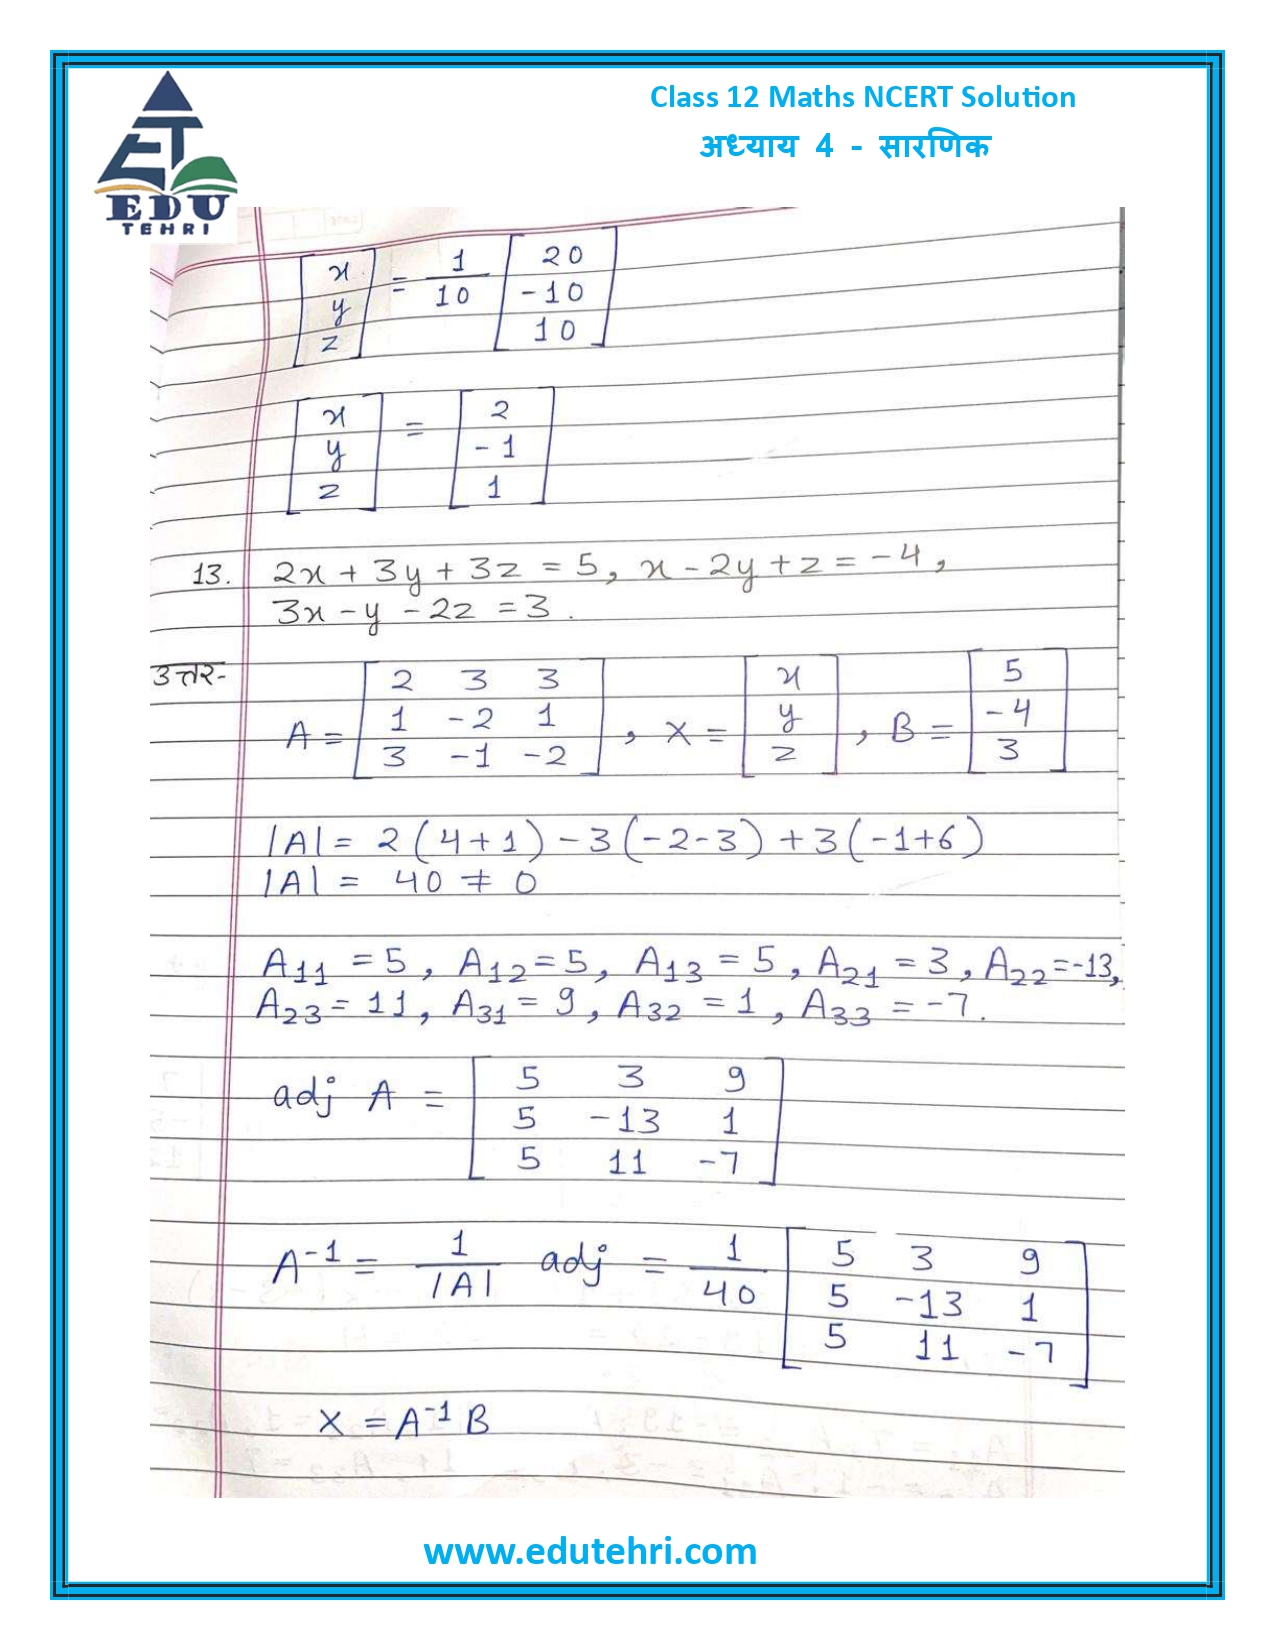 Class 12 Maths NCERT Solution
अध्याय 4 - सारणिक
ET
EDU
TEHRI
[x y z] = 1/10 [20 -10 10]
[x y z] = [2 -1 1]
13. 2x + 3y + 3z = 5, x - 2y + z = -4,
3x - y - 2z = 3.
उत्तर- A = [2 3 3; 1 -2 1; 3 -1 -2], X = [x y z], B = [5 -4 3]
|A| = 2(4+1) - 3(-2-3) + 3(-1+6)
|A| = 40 ≠ 0
A11 = 5, A12 = 5, A13 = 5, A21 = 3, A22 = -13,
A23 = 11, A31 = 9, A32 = 1, A33 = -7.
adj A = [5 3 9; 5 -13 1; 5 11 -7]
A⁻¹ = 1/|A| adj = 1/40 [5 3 9; 5 -13 1; 5 11 -7]
X = A⁻¹B
www.edutehri.com